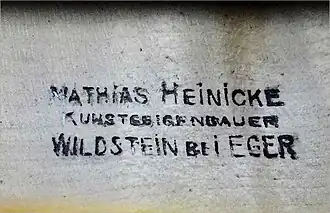 MATHIAS HEINICKE
KUNSTGEIGENBAUER
WILDSTEIN BEI EGER